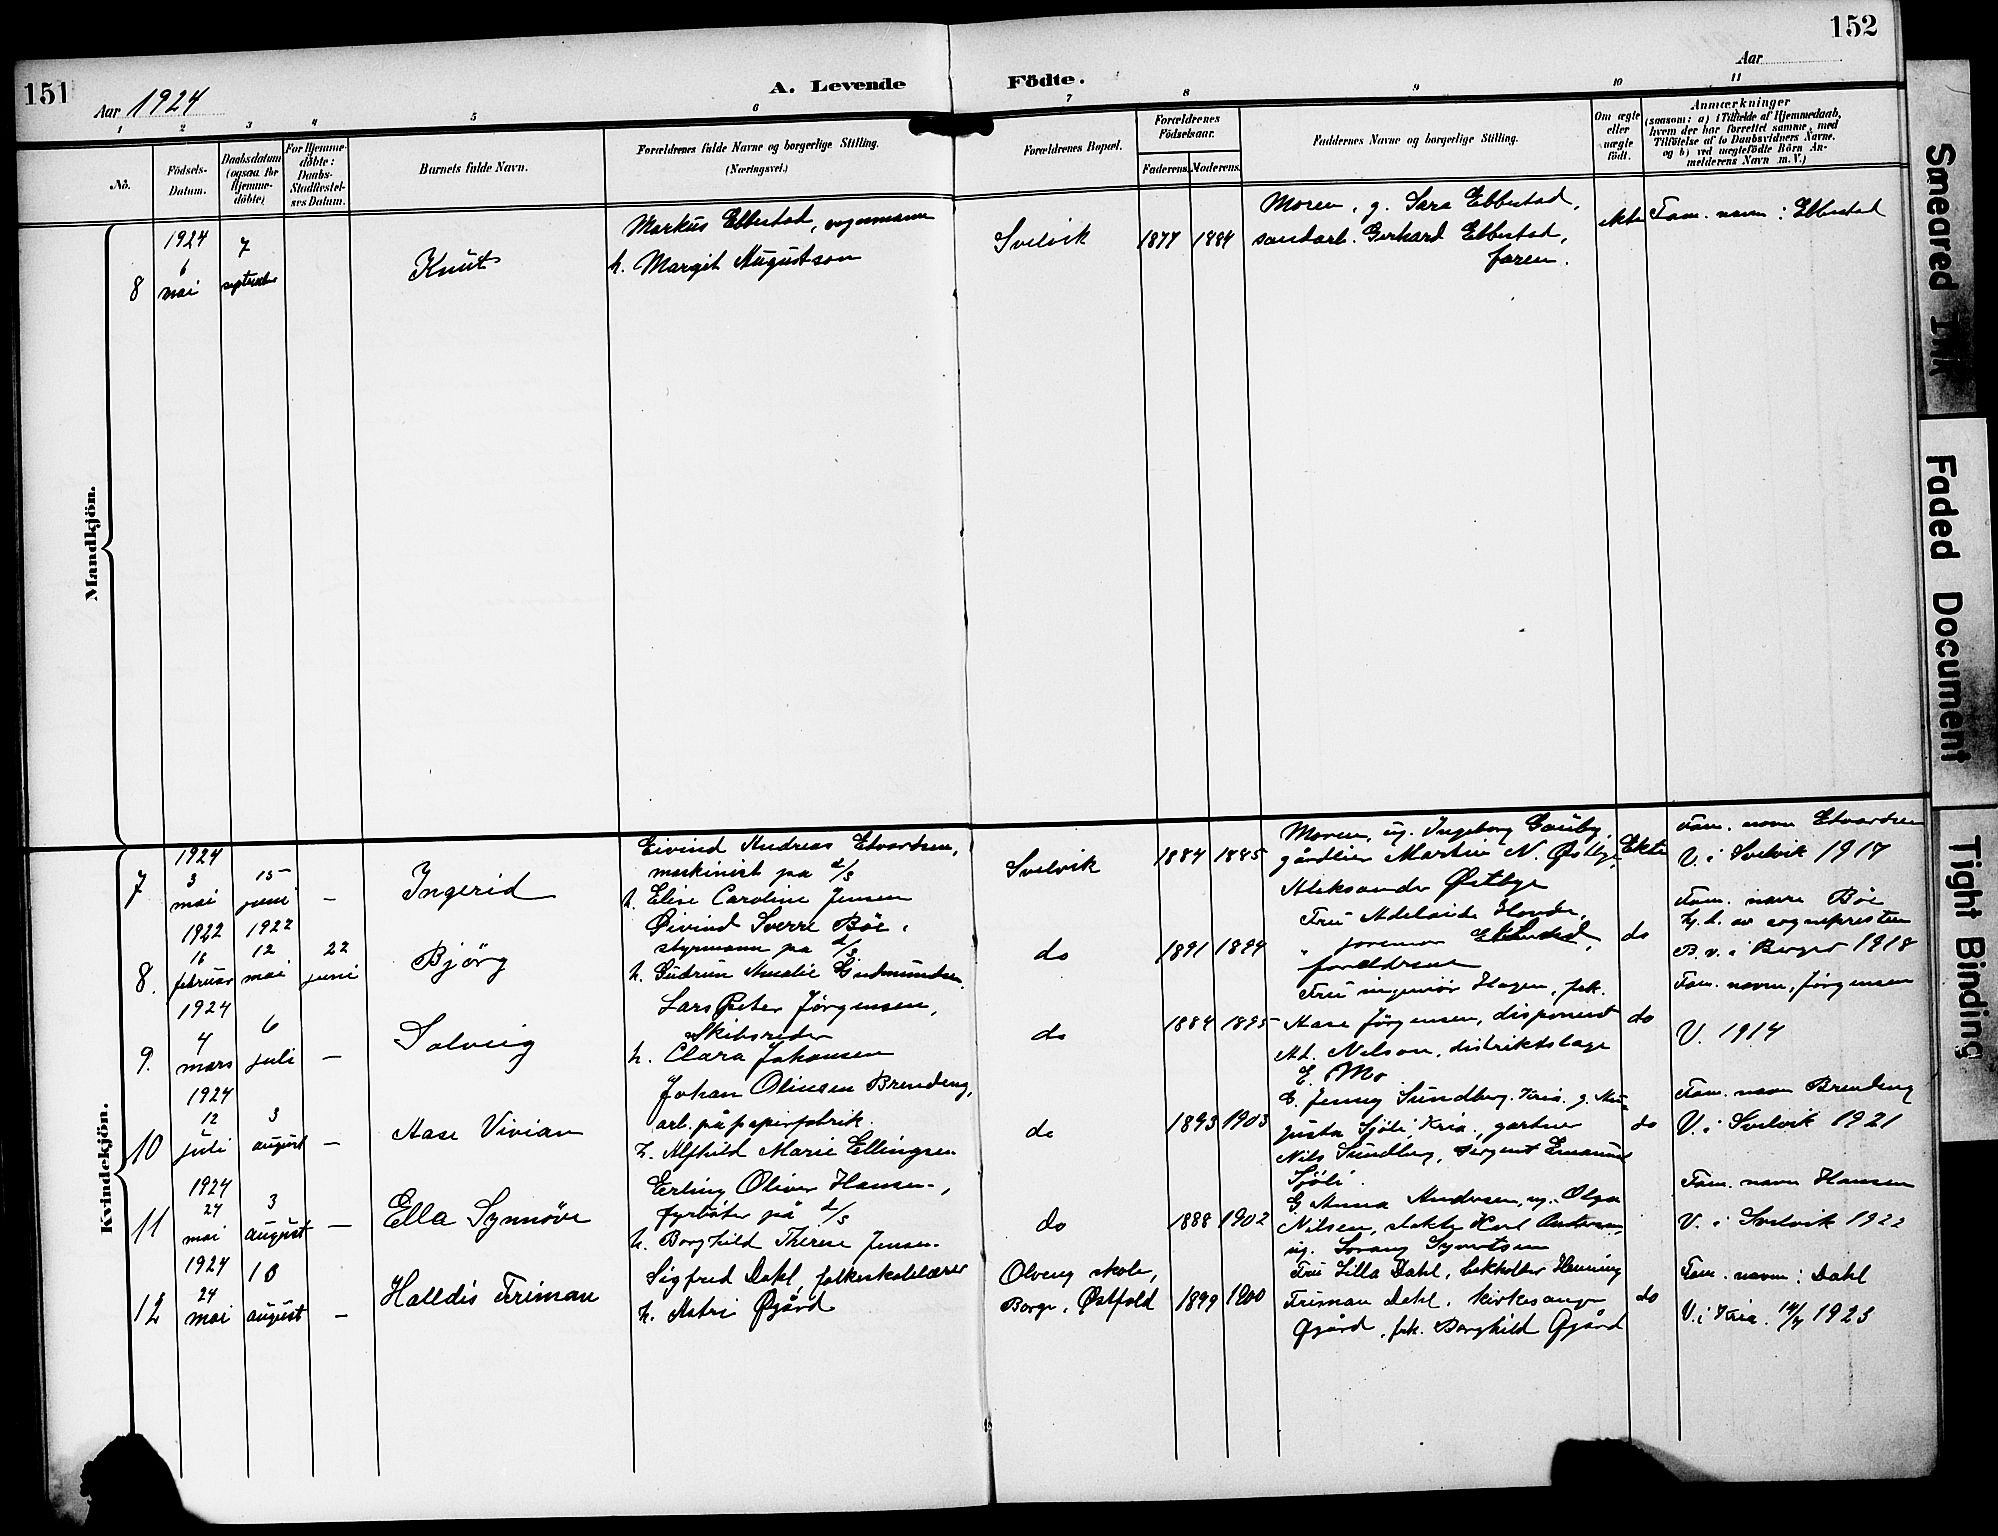 151
Aar 1924
A. Levende
Födte.
Aar
152
1 2 3 4 5 6 7 8 9 10 11
No.
Födsels-
Datum.
Daabsdatum
(ogsaa for
Hjemme-
døbte)
For Hjemme-
døbte:
Daabs-
Stadfæstel-
ses Datum.
Barnets fulde Navn.
Forældrenes fulde Navne og borgerlige Stilling.
(Næringsvei.)
Forældrenes Bopæl.
Forældrenes
Födselsaar.
Faderens.
Moderens.
Faddernes Navne og borgerlige Stilling.
Om ægte
eller
uægte
födt.
Anmærkninger
(saasom: a) i Tilfælde af Hjemmedaab,
hvem der har forrettet samme, med
Tilföielse af to Daabsvidners Navne.
og b) ved uægtefödte Börn An-
melderens Navn m. V.)
Mandkjön.
8
1924
6
mai
7
september
Knut
Markus Ebbestad,
h. Margit Augustson
Svelvik
1877 1884
Moren, g. Sara Ebbestad,
Gerhard Ebbestad,
faren.
ekte
Fam. navn: Ebbestad
Kvindekjön.
7
1924
3
mai
15
juni
–
Ingerid
Eivind Andreas Edvardsen,
maskinist på d/s
h. Elise Caroline Jensen
Svelvik
1884 1885
Moren, ug. Ingeborg Gauby,
gårdeier Martin N. Østbye,
Aleksander Østbye
Ekte
Fam. navn Edvardsen
V. i Svelvik 1917
8.
1922
16
februar
1922
12
mai
22
juni
Björg
Øivind Sverre Böe,
styrmann på d/s
h. Gudrun Amalie Gudmundsen
do
1891 1894
Fru Adelaide
foreldrene
do
Fam. navn Böe
Hj. d. av sognepresten
B. v. i Berger 1918
9.
1924
4
mars
6
juli
–
Solveig
Lars Peter Jørgensen,
Skibsreder
h. Clara Johansen
do
1884 1895
Fru ingeniør Hagen, frk.
Aase Jørgensen, disponent
Ad. Nilson, distriktslæge
E. Mo
do
Fam. navn, Jørgensen
V. 1914
10
1924
12
juli
3
august
–
Aase Vivian
Johan Olinsen Brendeng,
arb. på papirfabrik
h. Alfhild Marie Ellingsen
do
1893 1903
G. Jenny Sundberg, Kria. g. Au-
gusta Sjöli, Kria., gartner
Nils Sundberg, sergent Emanuel
Sjöli.
do
Fam. navn Brendeng
V. i Svelvik 1921
11
1924
24
mai
3
august
–
Ella Synnöve
Erling Oliver Hansen,
fyrböter på d/s
h. Borghild Therese Jensen
do
1888 1902
G. Anna Andersen, ug. Olga
Nilsen, Karl Andersen,
ug. Sverang Syvertsen
Fam. navn Hansen
V. i Svelvik 1922
12
1924
24
mai
10
august
–
Halldis Friman
Sigfred Dahl, folkeskolelærer
h. Astri Øgård
Olveng skole,
Borge, Østfold
1899 1900
Fru Lilla Dahl, bokholder Henning
Friman Dahl, kirkesanger
Øgård, frk. Borghild Øgård
do
Fam. navn: Dahl
V. i Kria. 14/7 1923
Smeared Ink
Faded Document
Tight Binding